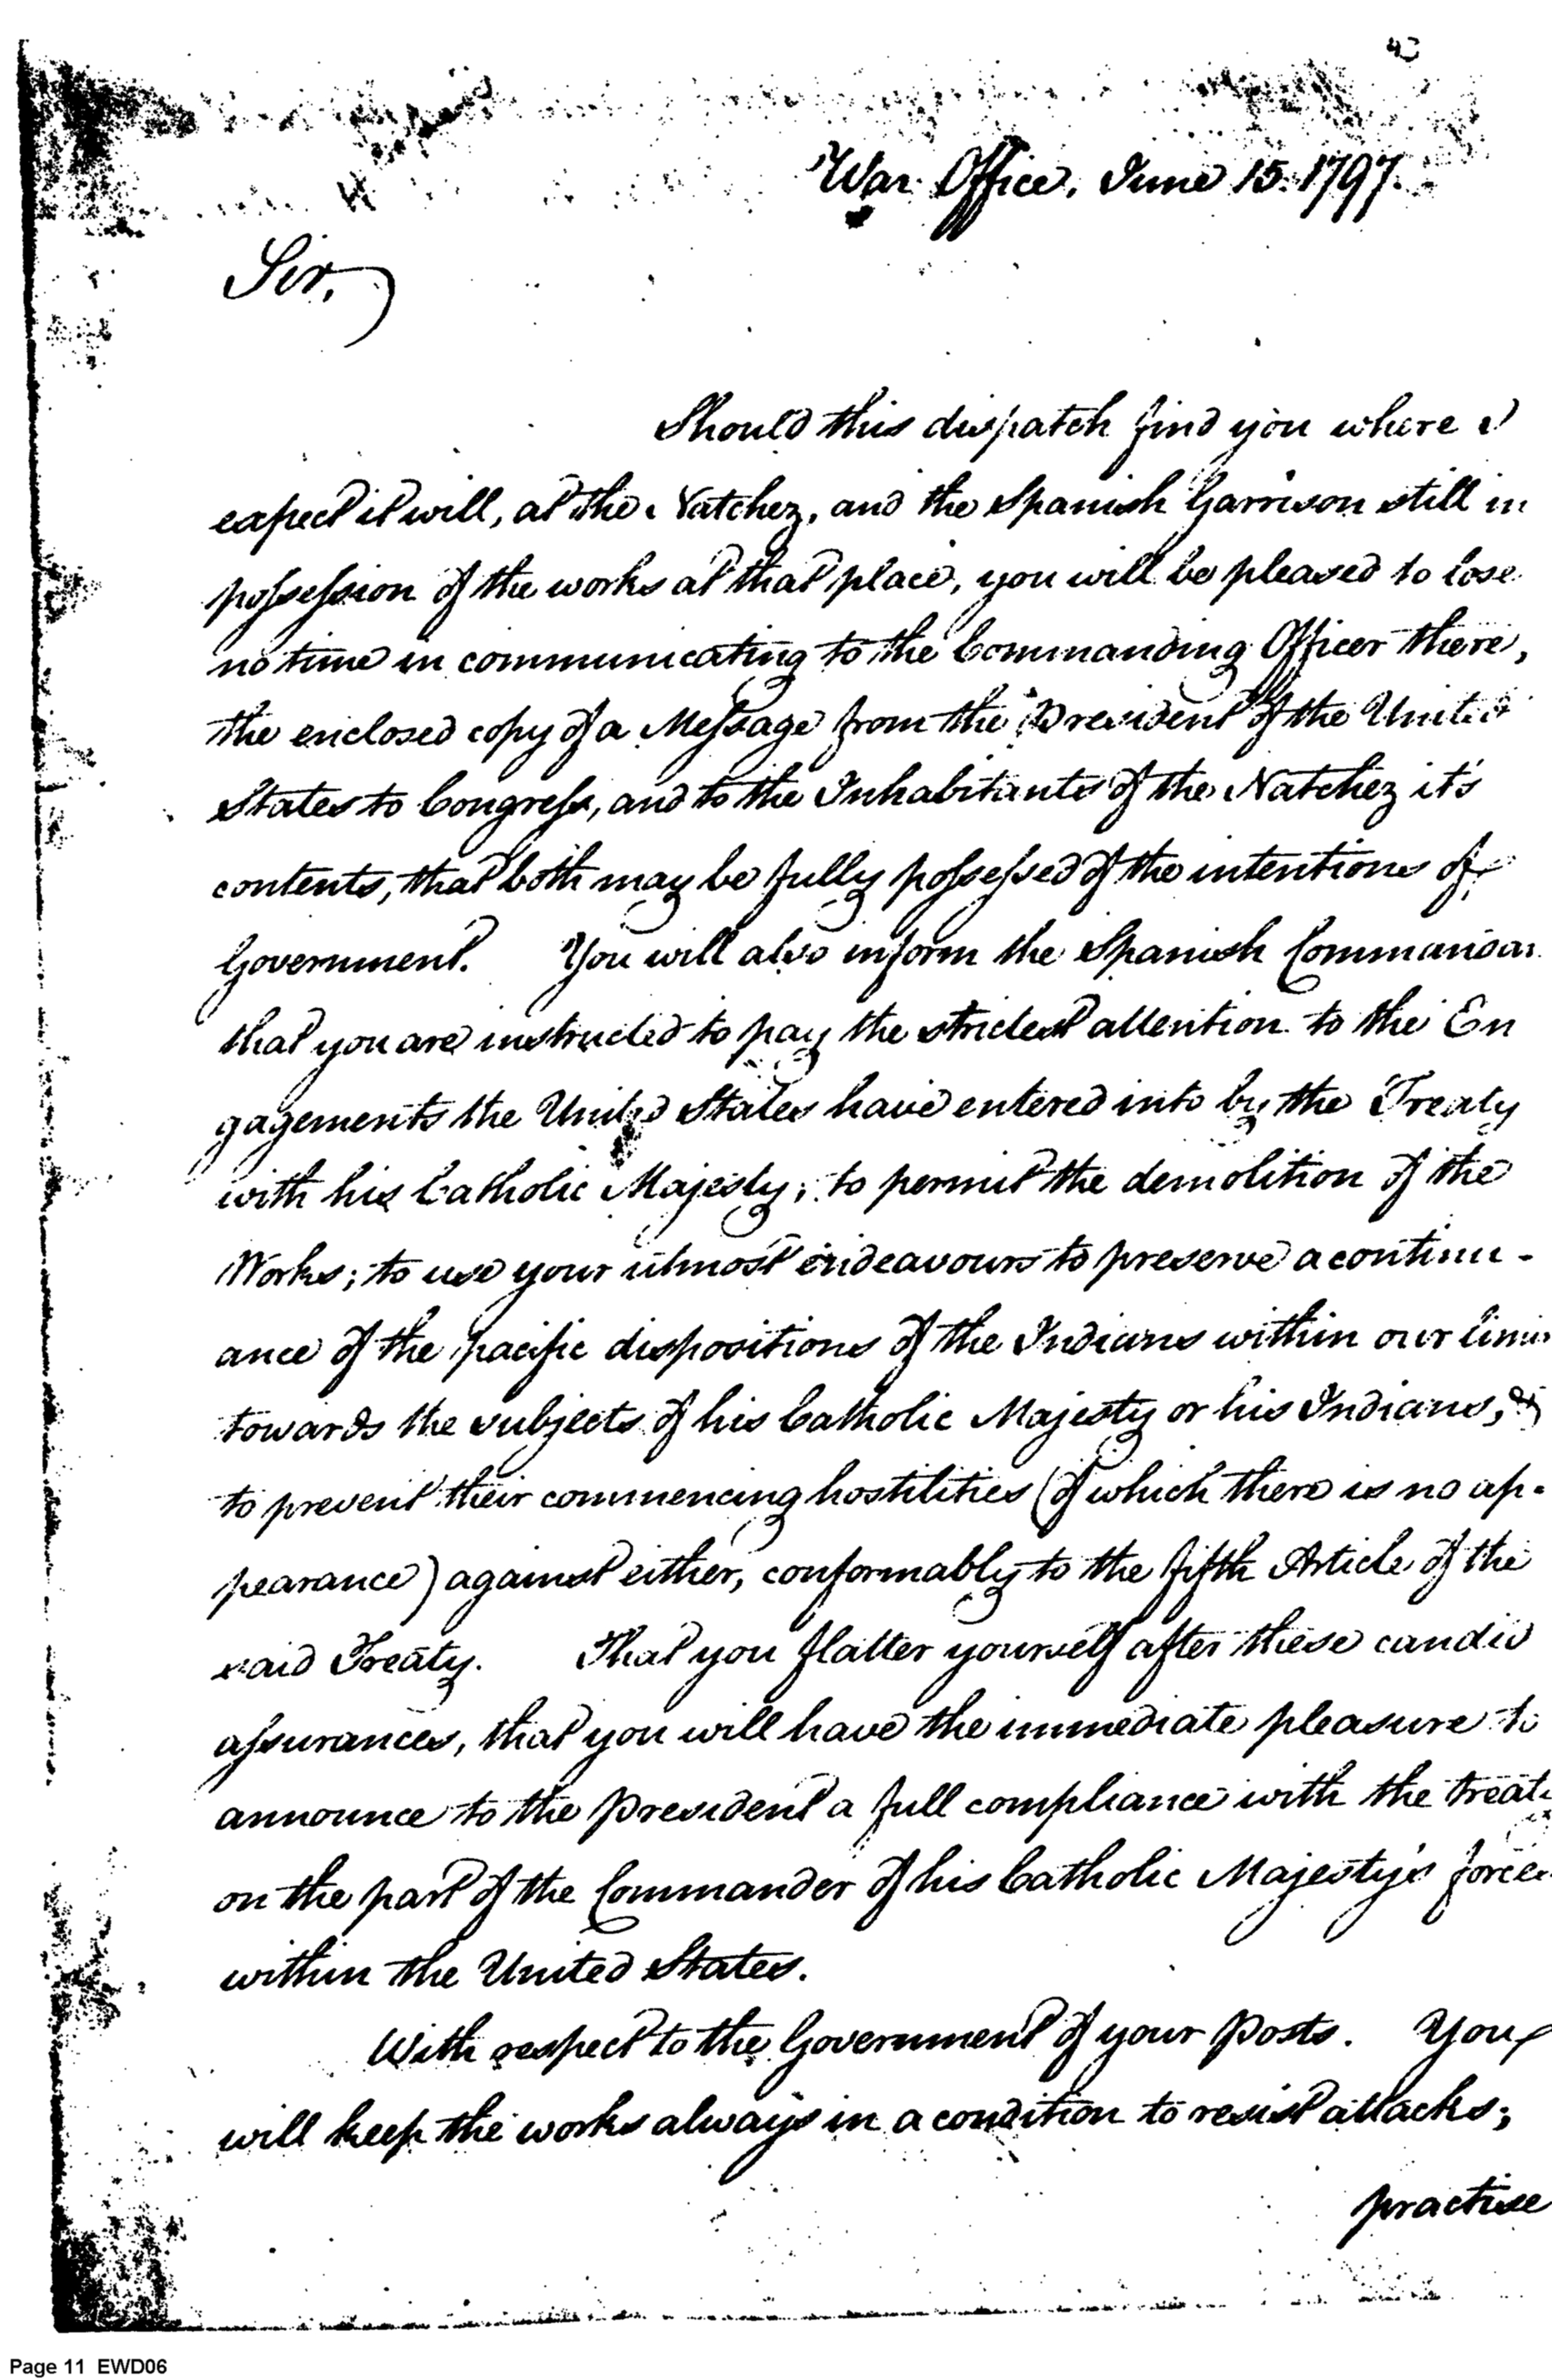 War Office, June 15. 1797.
Sir,
Should this dispatch find you where I
expect it will, at the Natchez, and the Spanish Garrison still in
possession of the works at that place, you will be pleased to lose
no time in communicating to the Commanding Officer there,
the enclosed copy of a Message from the President of the United
States to Congress, and to the Inhabitants of the Natchez it's
contents, that both may be fully possessed of the intentions of
Government. You will also inform the Spanish
that you are instructed to pay the strictest attention to the En
gagements the United States have entered into by the Treaty
with his Catholic Majesty; to permit the demolition of the
Works; to use your utmost endeavours to preserve a continu-
ance of the pacific dispositions of the Indians within our
towards the subjects of his Catholic Majesty or his Indians, &
to prevent their commencing hostilities (of which there is no ap-
pearance) against either, conformably to the fifth Article of the
said Treaty. That you flatter yourself after these candid
assurances, that you will have the immediate pleasure to
announce to the President a full compliance with the
on the part of the Commander of his Catholic Majesty's forces
within the United States.
With respect to the Government of your Posts. You
will keep the works always in a condition to resist attacks;
practise
Page 11 EWD06